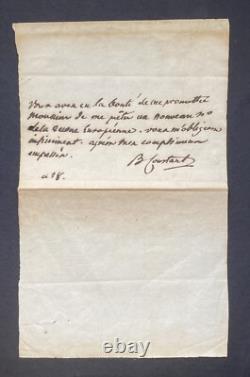 Vous avez eu la bonté de me promettre
Monsieur de me prêter un nouveau n°
de la Revue Européenne. vous m'obligerez
infiniment. agréez mes complimens
empressés.
B Constant
ce 18.
ttt4.com